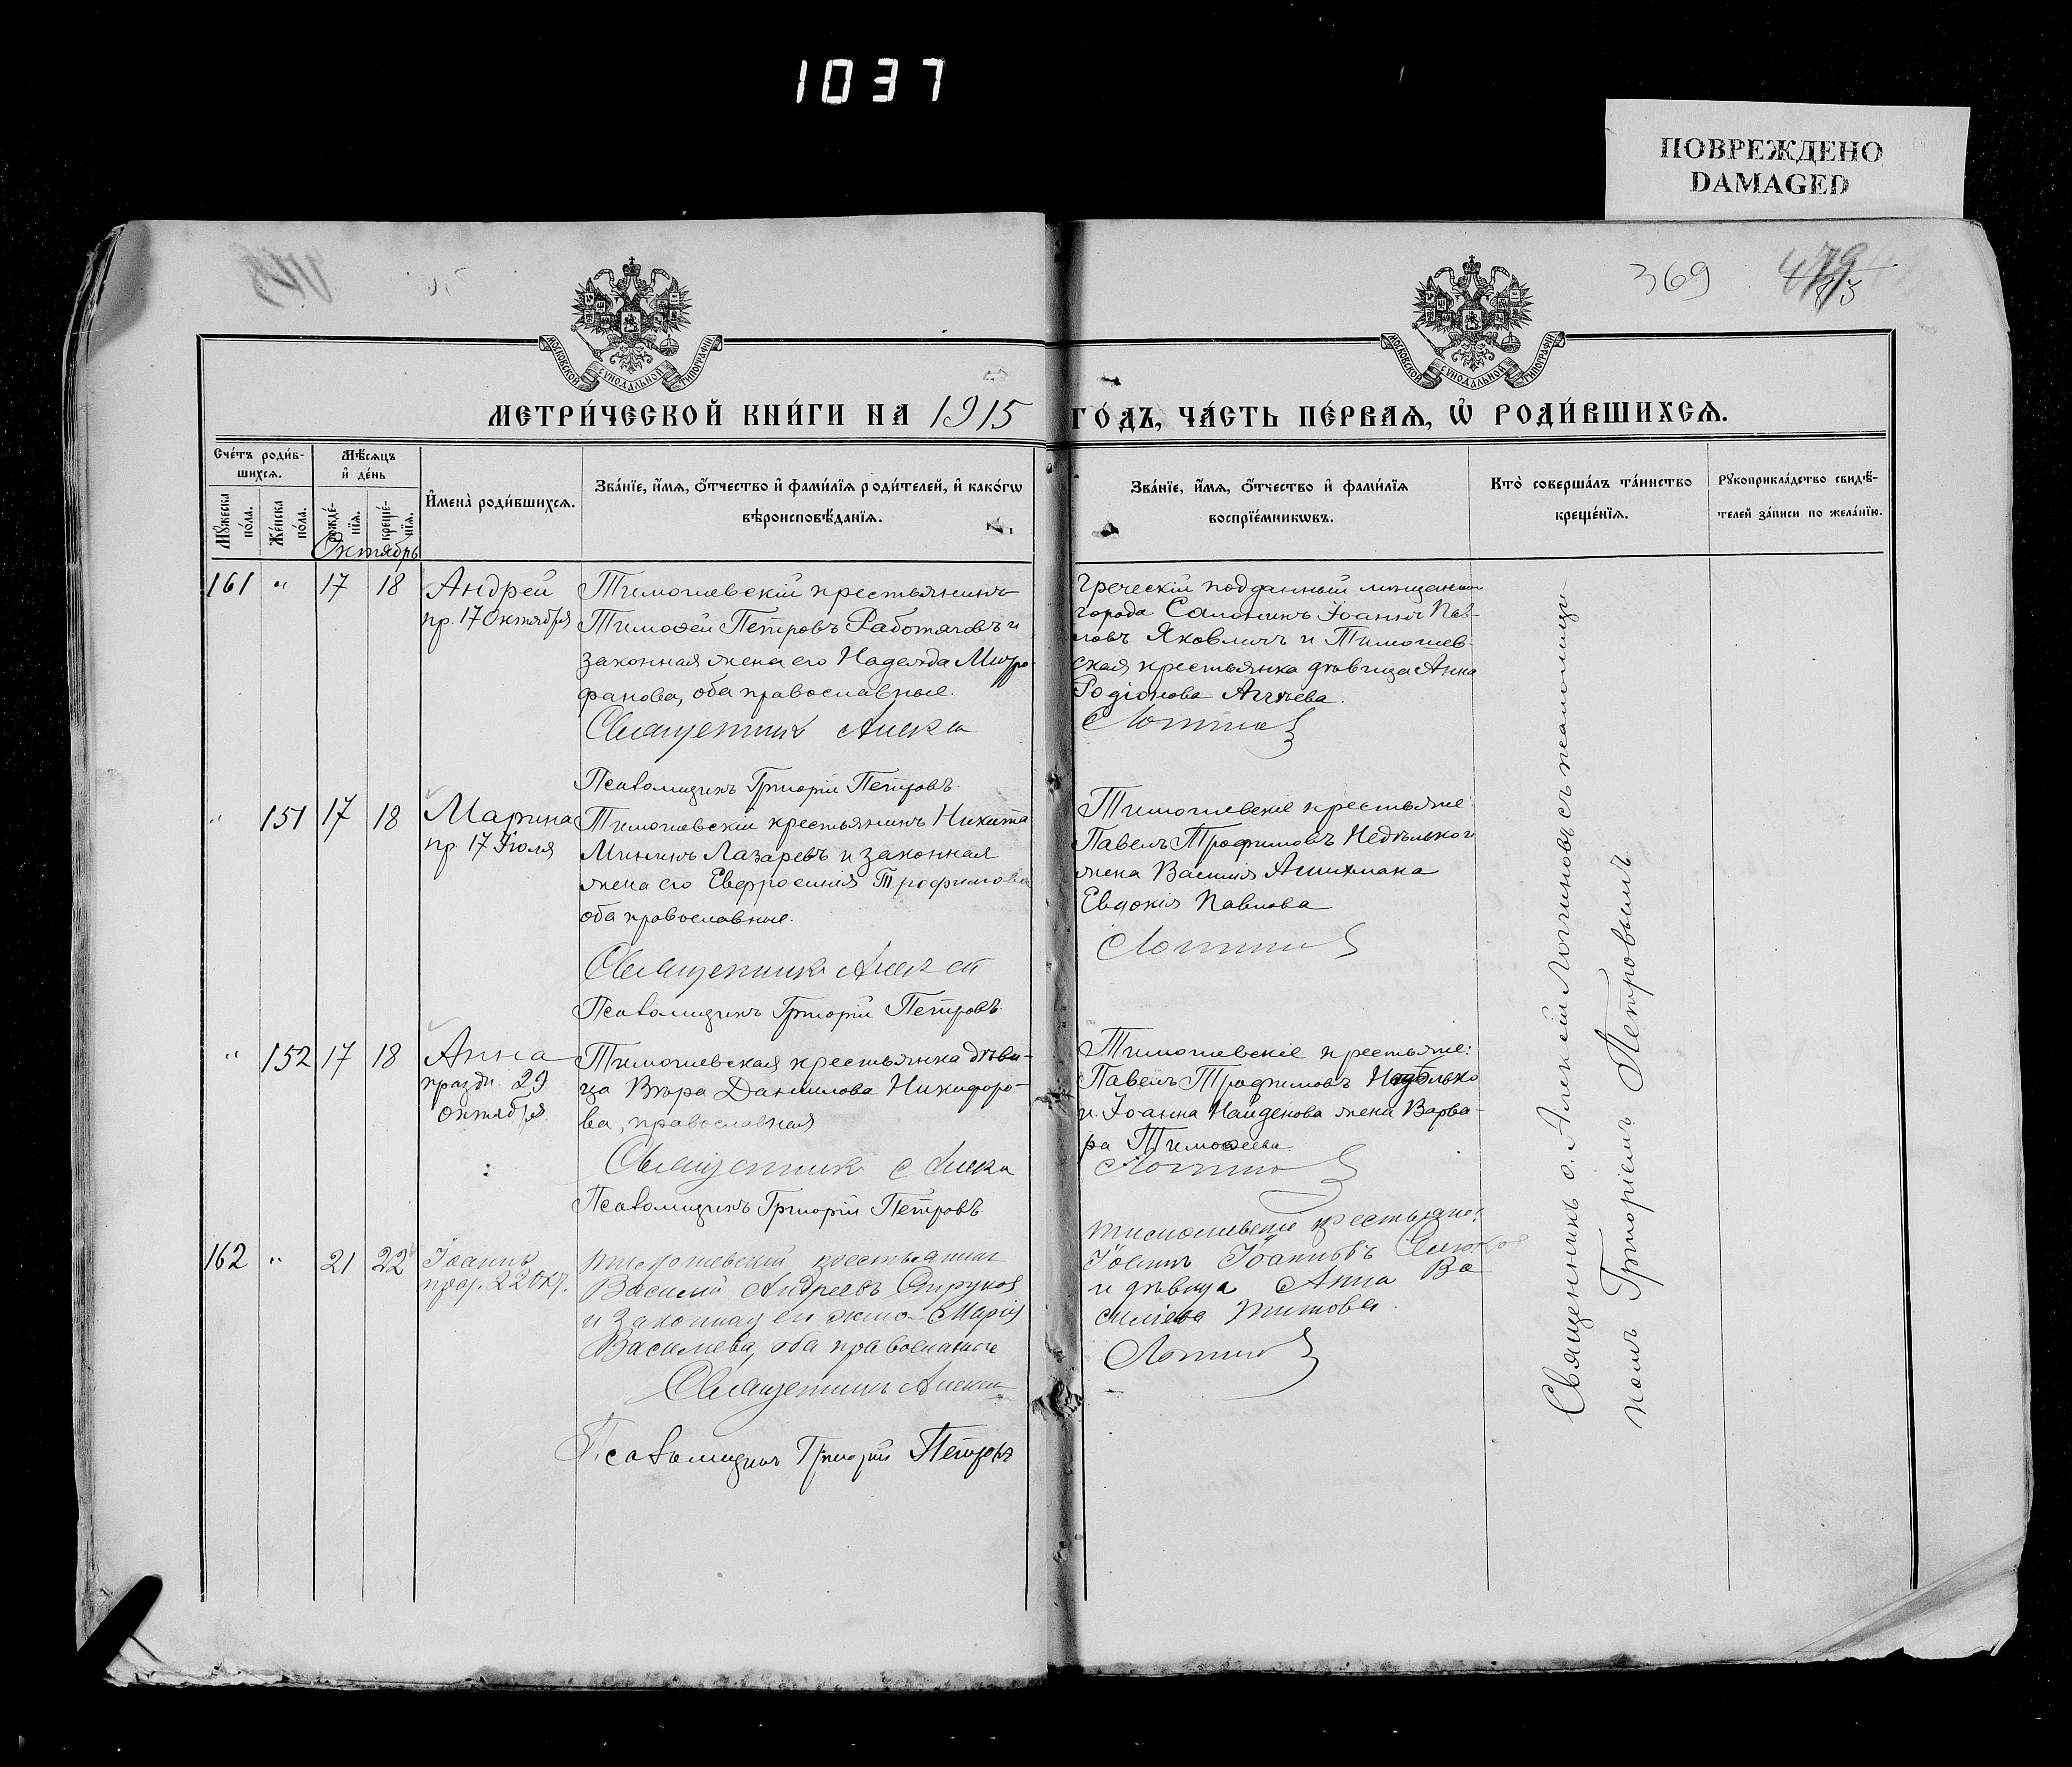 1037
ПОВРЕЖДЕНО
DAMAGED
369
МОСКОВСКОЙ СѴНОДАЛЬНОЙ ТИПОГРАФІИ
МОСКОВСКОЙ СѴНОДАЛЬНОЙ ТИПОГРАФІИ
МЕТРИ́ЧЕСКОЙ КНИ́ГИ НА 1915 ГО́ДЪ, ЧА́СТЬ ПЕ́РВАѦ, Ѡ҆ РОДИ́ВШИХСѦ.
Сче́тъ роди́в-
шихсѧ.
Мѣ́сѧцъ
и҆ де́нь
Мꙋ́жеска
по́ла.
Же́нска
по́ла.
рожде́-
нїѧ.
креще́-
нїѧ.
И҆мена̀ роди́вшихсѧ.
Зва́нїе, и҆́мѧ, ѻ҆́тчество и҆ фами́лїѧ роди́телей, и҆ како́гѡ
вѣроисповѣ́данїѧ.
Зва́нїе, и҆́мѧ, ѻ҆́тчество и҆ фами́лїѧ
воспрїе́мникѡвъ.
Кто̀ соверша́лъ та́инство
креще́нїѧ.
Рꙋкоприкла́дство свидѣ́-
телей за́писи по жела́нїю.
Октябрь
161 " 17 18 Андрей
пр. 17 Октября
Тимошевскій крестьянинъ
Тимоѳей Петровъ Работяговъ и
законная жена его Надежда Митро-
фанова, оба православные.
Священникъ Алекс
Псаломщикъ Григорій Петровъ.
Греческій подданный мѣщанинъ
города Салоникъ Іоаннъ Пав-
ловъ Яковличъ и Тимошев-
ская крестьянка дѣвица Анна
Родіонова Агѣева.
Логинов
" 151 17 18 Марина
пр. 17 Іюля
Тимошевскій крестьянинъ Никита
Мининъ Лазаревъ и законная
жена его Евфросинія Трофимова
оба православные.
Священникъ Алексей
Псаломщикъ Григорій Петровъ.
Тимошевскіе крестьяне:
Павелъ Трофимовъ Недѣлько и
жена Василія
Евдокія Павлова
Логинов
" 152 17 18 Анна
праздн 29
октября
Тимошевская крестьянка дѣви-
ца Вѣра Данилова Никифоро-
ва, православная
Священникъ Алекс
Псаломщикъ Григорій Петровъ.
Тимошевскіе крестьяне:
Павелъ Трофимовъ Недѣлько
и Іоанна Найденова жена Варва-
ра Тимоѳеева.
Логинов
162 " 21 22 Іоаннъ
праз. 22 Окт.
Тимошевскій крестьянин
Василій Андреевъ Струков
и законная его жена Марія
Васильева, оба православные
Священникъ Алексей
Псаломщикъ Григорій Петровъ
Тимошевскіе крестьяне:
Іоаннъ Іоанновъ
и дѣвица Анна Ва
сильева Титова.
Логинов
Священникъ о. Алексій Логиновъ съ псаломщи-
комъ Григоріемъ Петровымъ